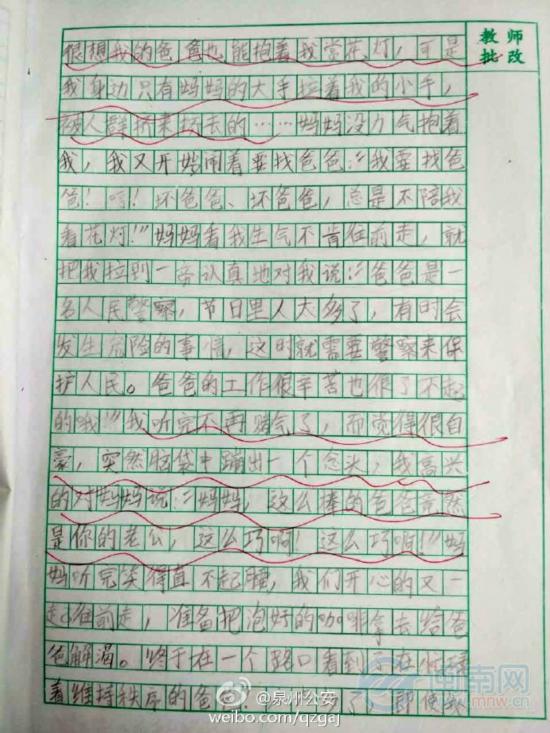 很想我的爸爸也能抱着我赏花灯，可是
教师
批改
我身边只有妈妈的大手拉着我的小手，
被人群挤来挤去的……妈妈没力气抱着
我，我又开始闹着要找爸爸：“我要找爸
爸！哼！坏爸爸、坏爸爸，总是不陪我
看花灯！”妈妈看我生气不肯往前走，就
把我拉到一旁认真地对我说：“爸爸是一
名人民警察，节日里人太多了，有时会
发生危险的事情，这时就需要警察来保
护人民。爸爸的工作很辛苦也很了不起
的哦！”我听完不再赌气了，而觉得很自
豪，突然脑袋中蹦出一个念头，我高兴
的对妈妈说：“妈妈，这么棒的爸爸竟然
是你的老公，这么巧啊！这么巧啊！”妈
妈听完笑得直不起腰，我们开心的又一
起往前走，准备把泡好的咖啡拿去给爸
爸解渴。终于在一个路口看到正在
着维持秩序的爸爸！了，即使我
@泉州公安
weibo.com/qzgaj
闽南网
www.mnw.cn